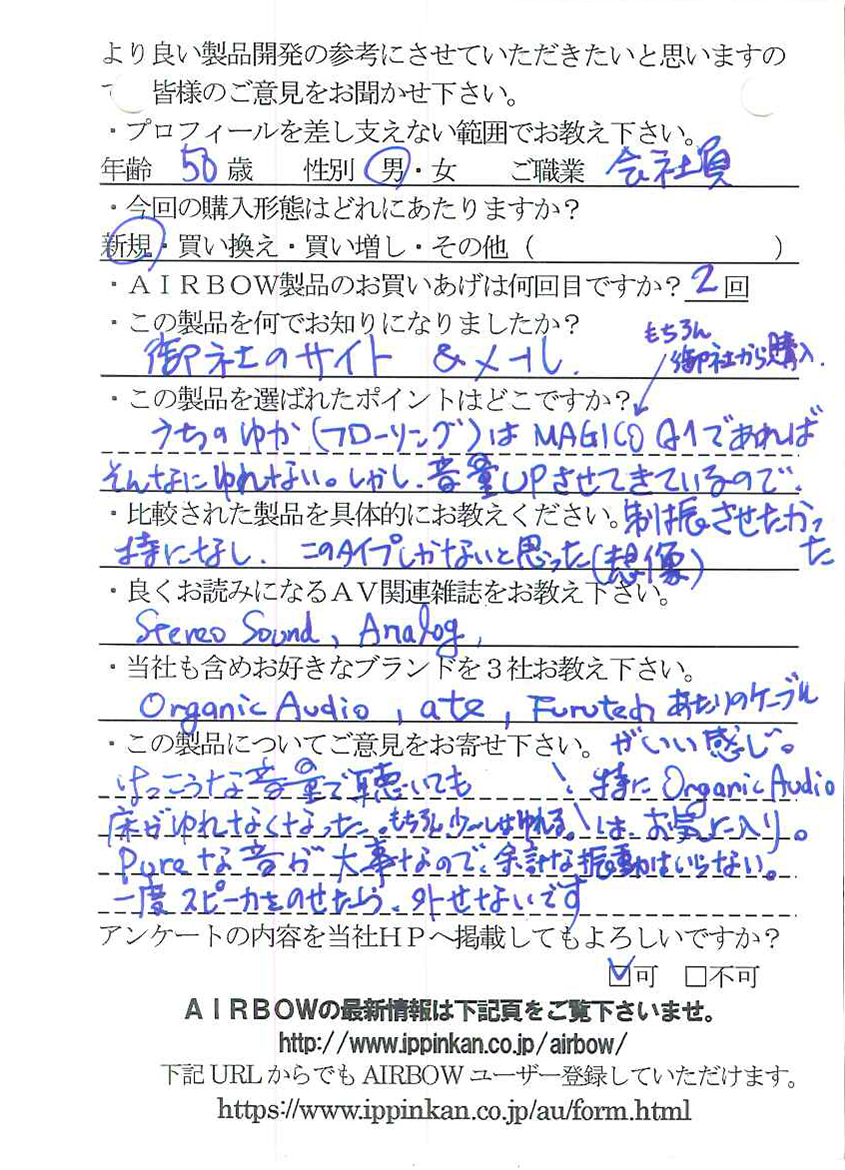 より良い製品開発の参考にさせていただきたいと思いますの
皆様のご意見をお聞かせ下さい。
・プロフィールを差し支えない範囲でお教え下さい。
年齢 50 歳 性別 男・女 ご職業 会社員
・今回の購入形態はどれにあたりますか？
新規・買い換え・買い増し・その他（ ）
・ＡＩＲＢＯＷ製品のお買いあげは何回目ですか？ 2 回
・この製品を何でお知りになりましたか？
御社のサイト &メール.
もちろん
御社から購入.
・この製品を選ばれたポイントはどこですか？
うちのゆか(フローリング)は MAGICO A1であれば
そんなにゆれない。しかし、音量UPさせてきているので、
制は振させたかった
・比較された製品を具体的にお教えください。
特になし. このタイプしかないと思った(想像)
・良くお読みになるＡＶ関連雑誌をお教え下さい。
Stereo Sound, Analog,
・当社も含めお好きなブランドを３社お教え下さい。
Organic Audio, ate, Furutech あたりのケーブル
がいい感じ。
特に Organic Audio
は、お気に入り。
・この製品についてご意見をお寄せ下さい。
けっこうな音の量で聴いても
床がゆれなくなった。もちろん少ーしはゆれる。
Pureな音が大事なので、余計な振動はいらない。
一度スピーカをのせたら、外せないです
アンケートの内容を当社ＨＰへ掲載してもよろしいですか？
☑可 □不可
ＡＩＲＢＯＷの最新情報は下記頁をご覧下さいませ。
http://www.ippinkan.co.jp/airbow/
下記 URL からでも AIRBOW ユーザー登録していただけます。
https://www.ippinkan.co.jp/au/form.html